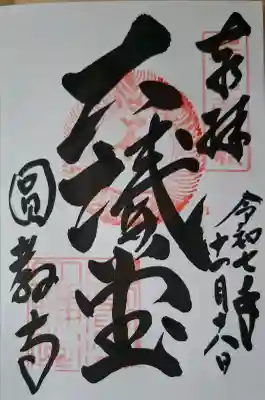 奉拝
令和七年
十一月十八日
大講堂
圓教寺